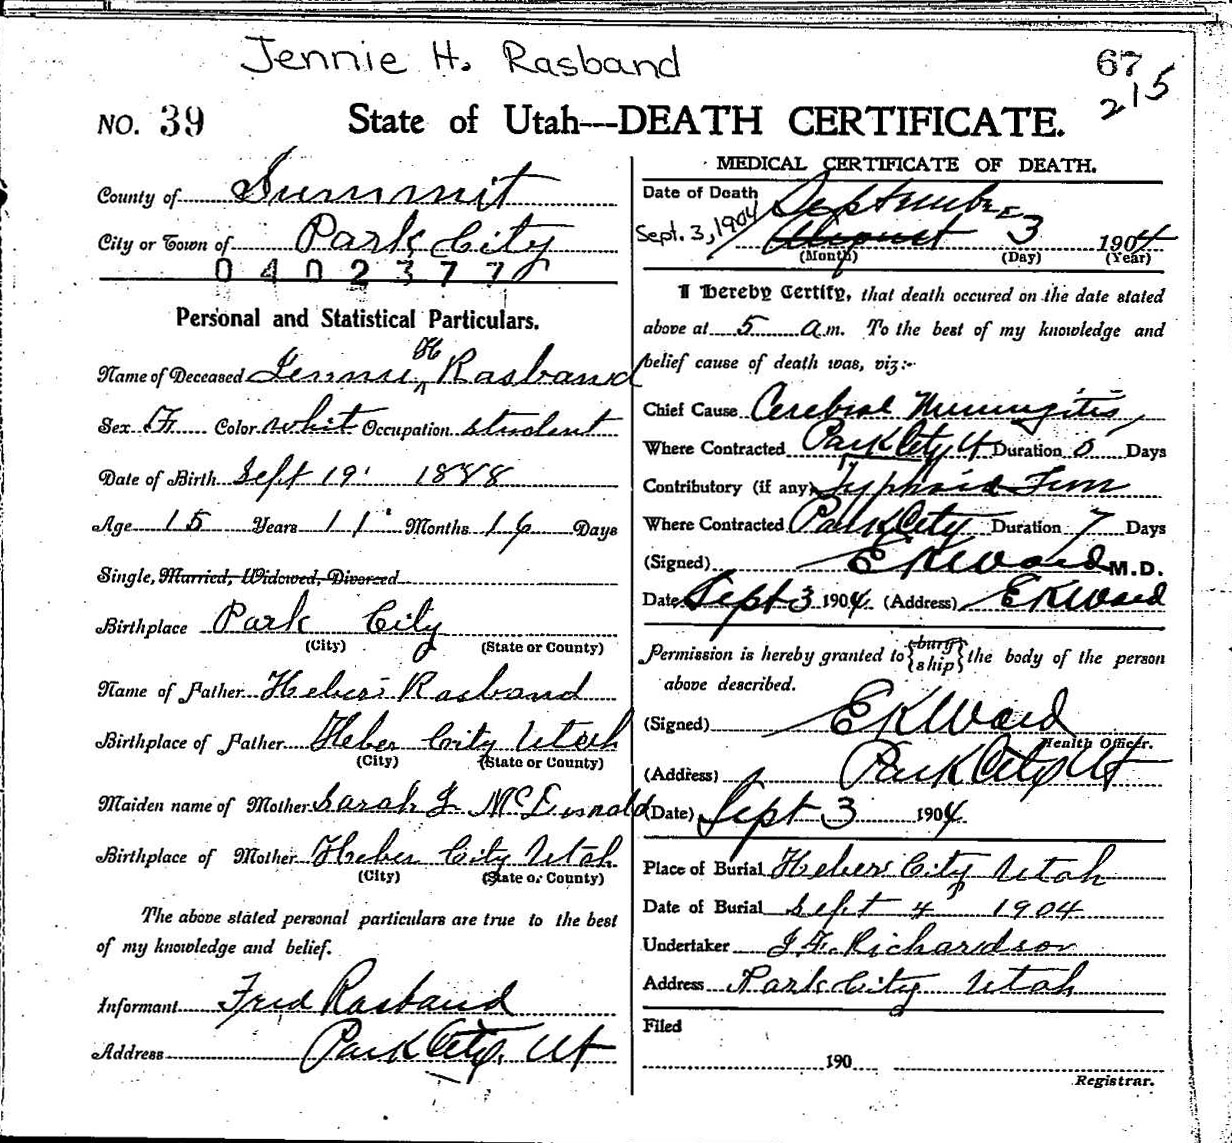 Jennie H. Rasband
67
215
NO. 39 State of Utah---DEATH CERTIFICATE.
County of Summit
City or Town of Park City
0 4 0 2 3 7 7
Personal and Statistical Particulars.
Name of Deceased Jennie H Rasband
Sex F Color whit Occupation student
Date of Birth Sept 19 1888
Age 15 Years 11 Months 16 Days
Single, Married, Widowed, Divorced
Birthplace Park City
(City) (State or County)
Name of Father Heber Rasband
Birthplace of Father Heber City Utah
(City) (State or County)
Maiden name of Mother Sarah J McDonald
Birthplace of Mother Heber City Utah
(City) (State or County)
The above stated personal particulars are true to the best
of my knowledge and belief.
Informant Fred Rasband
Address Park City, Ut
MEDICAL CERTIFICATE OF DEATH.
Date of Death September
Sept. 3, 1904 August 3 1904
(Month) (Day) (Year)
I hereby Certify, that death occured on the date stated
above at 5 a.m. To the best of my knowledge and
belief cause of death was, viz:-
Chief Cause Cerebral Meningitis,
Where Contracted Park City Ut Duration 5 Days
Contributory (if any) Typhoid Fever
Where Contracted Park City Duration 7 Days
(Signed) EKWard M.D.
Date Sept 3 1904. (Address) EKWard
Permission is hereby granted to {bury ship} the body of the person
above described.
(Signed) EKWard
Health Officer.
(Address) Park City Ut
(Date) Sept 3 1904.
Place of Burial Heber City Utah
Date of Burial Sept 4 1904
Undertaker Richardson
Address Park City Utah
Filed
190
Registrar.